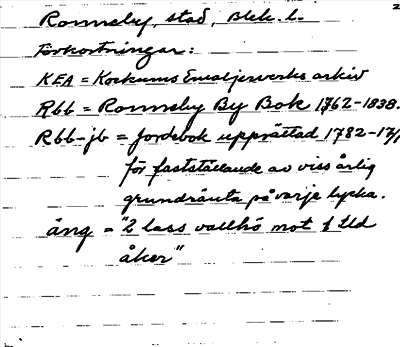 Ronneby, stad, Blek. l.
Förkortningar:
KEA = Kockums Emaljerverks arkiv
Rbb = Ronneby By Bok 1762-1838.
Rbb-jb = Jordebok upprättad 1782-17
för fastställande av viss årlig
grundränta på varje lycka.
äng = "2 lass vallhö mot 1 tld
åker"